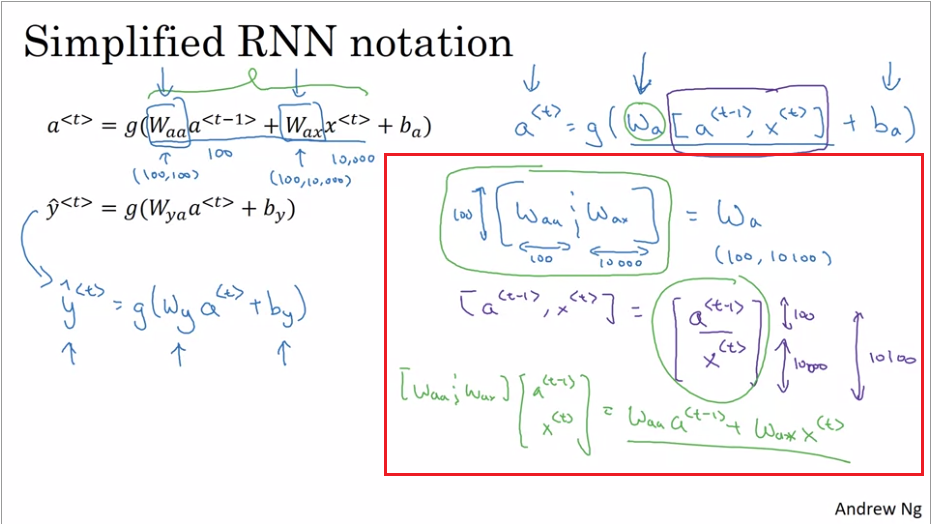 Simplified RNN notation
a^{<t>} = g(W_{aa}a^{<t−1>} + W_{ax}x^{<t>} + b_a)
100 10,000
(100,100) (100,10,000)
ŷ^{<t>} = g(W_{ya}a^{<t>} + b_y)
ŷ^{<t>} = g(W_y a^{<t>} + b_y)
a^{<t>} = g(W_a [a^{<t-1>}, x^{<t>}] + b_a)
100 [W_{aa} ; W_{ax}] = W_a
100 10000 (100, 10100)
[a^{<t-1>}, x^{<t>}] = [a^{<t-1>} 100
x^{<t>}] 10000 10100
[W_{aa} ; W_{ax}] [a^{<t-1>}
x^{<t>}] = W_{aa} a^{<t-1>} + W_{ax} x^{<t>}
Andrew Ng